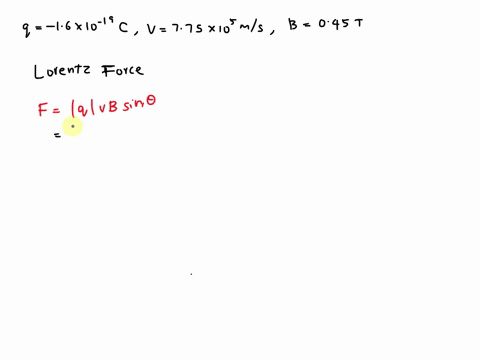 q = -1.6 × 10⁻¹⁹ C, V = 7.75 × 10⁵ m/s, B = 0.45 T
Lorentz Force
F = |q| v B sin θ
=